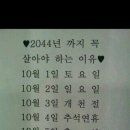 ♥2044년 까지 꼭
살아야 하는 이유♥
10월 1일 토 요 일
10월 2일 일 요 일
10월 3일 개 천 절
10월 4일 추석연휴